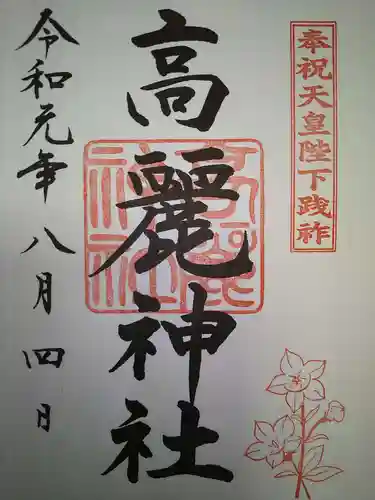 奉祝天皇陛下践祚
高麗神社
令和元年八月四日